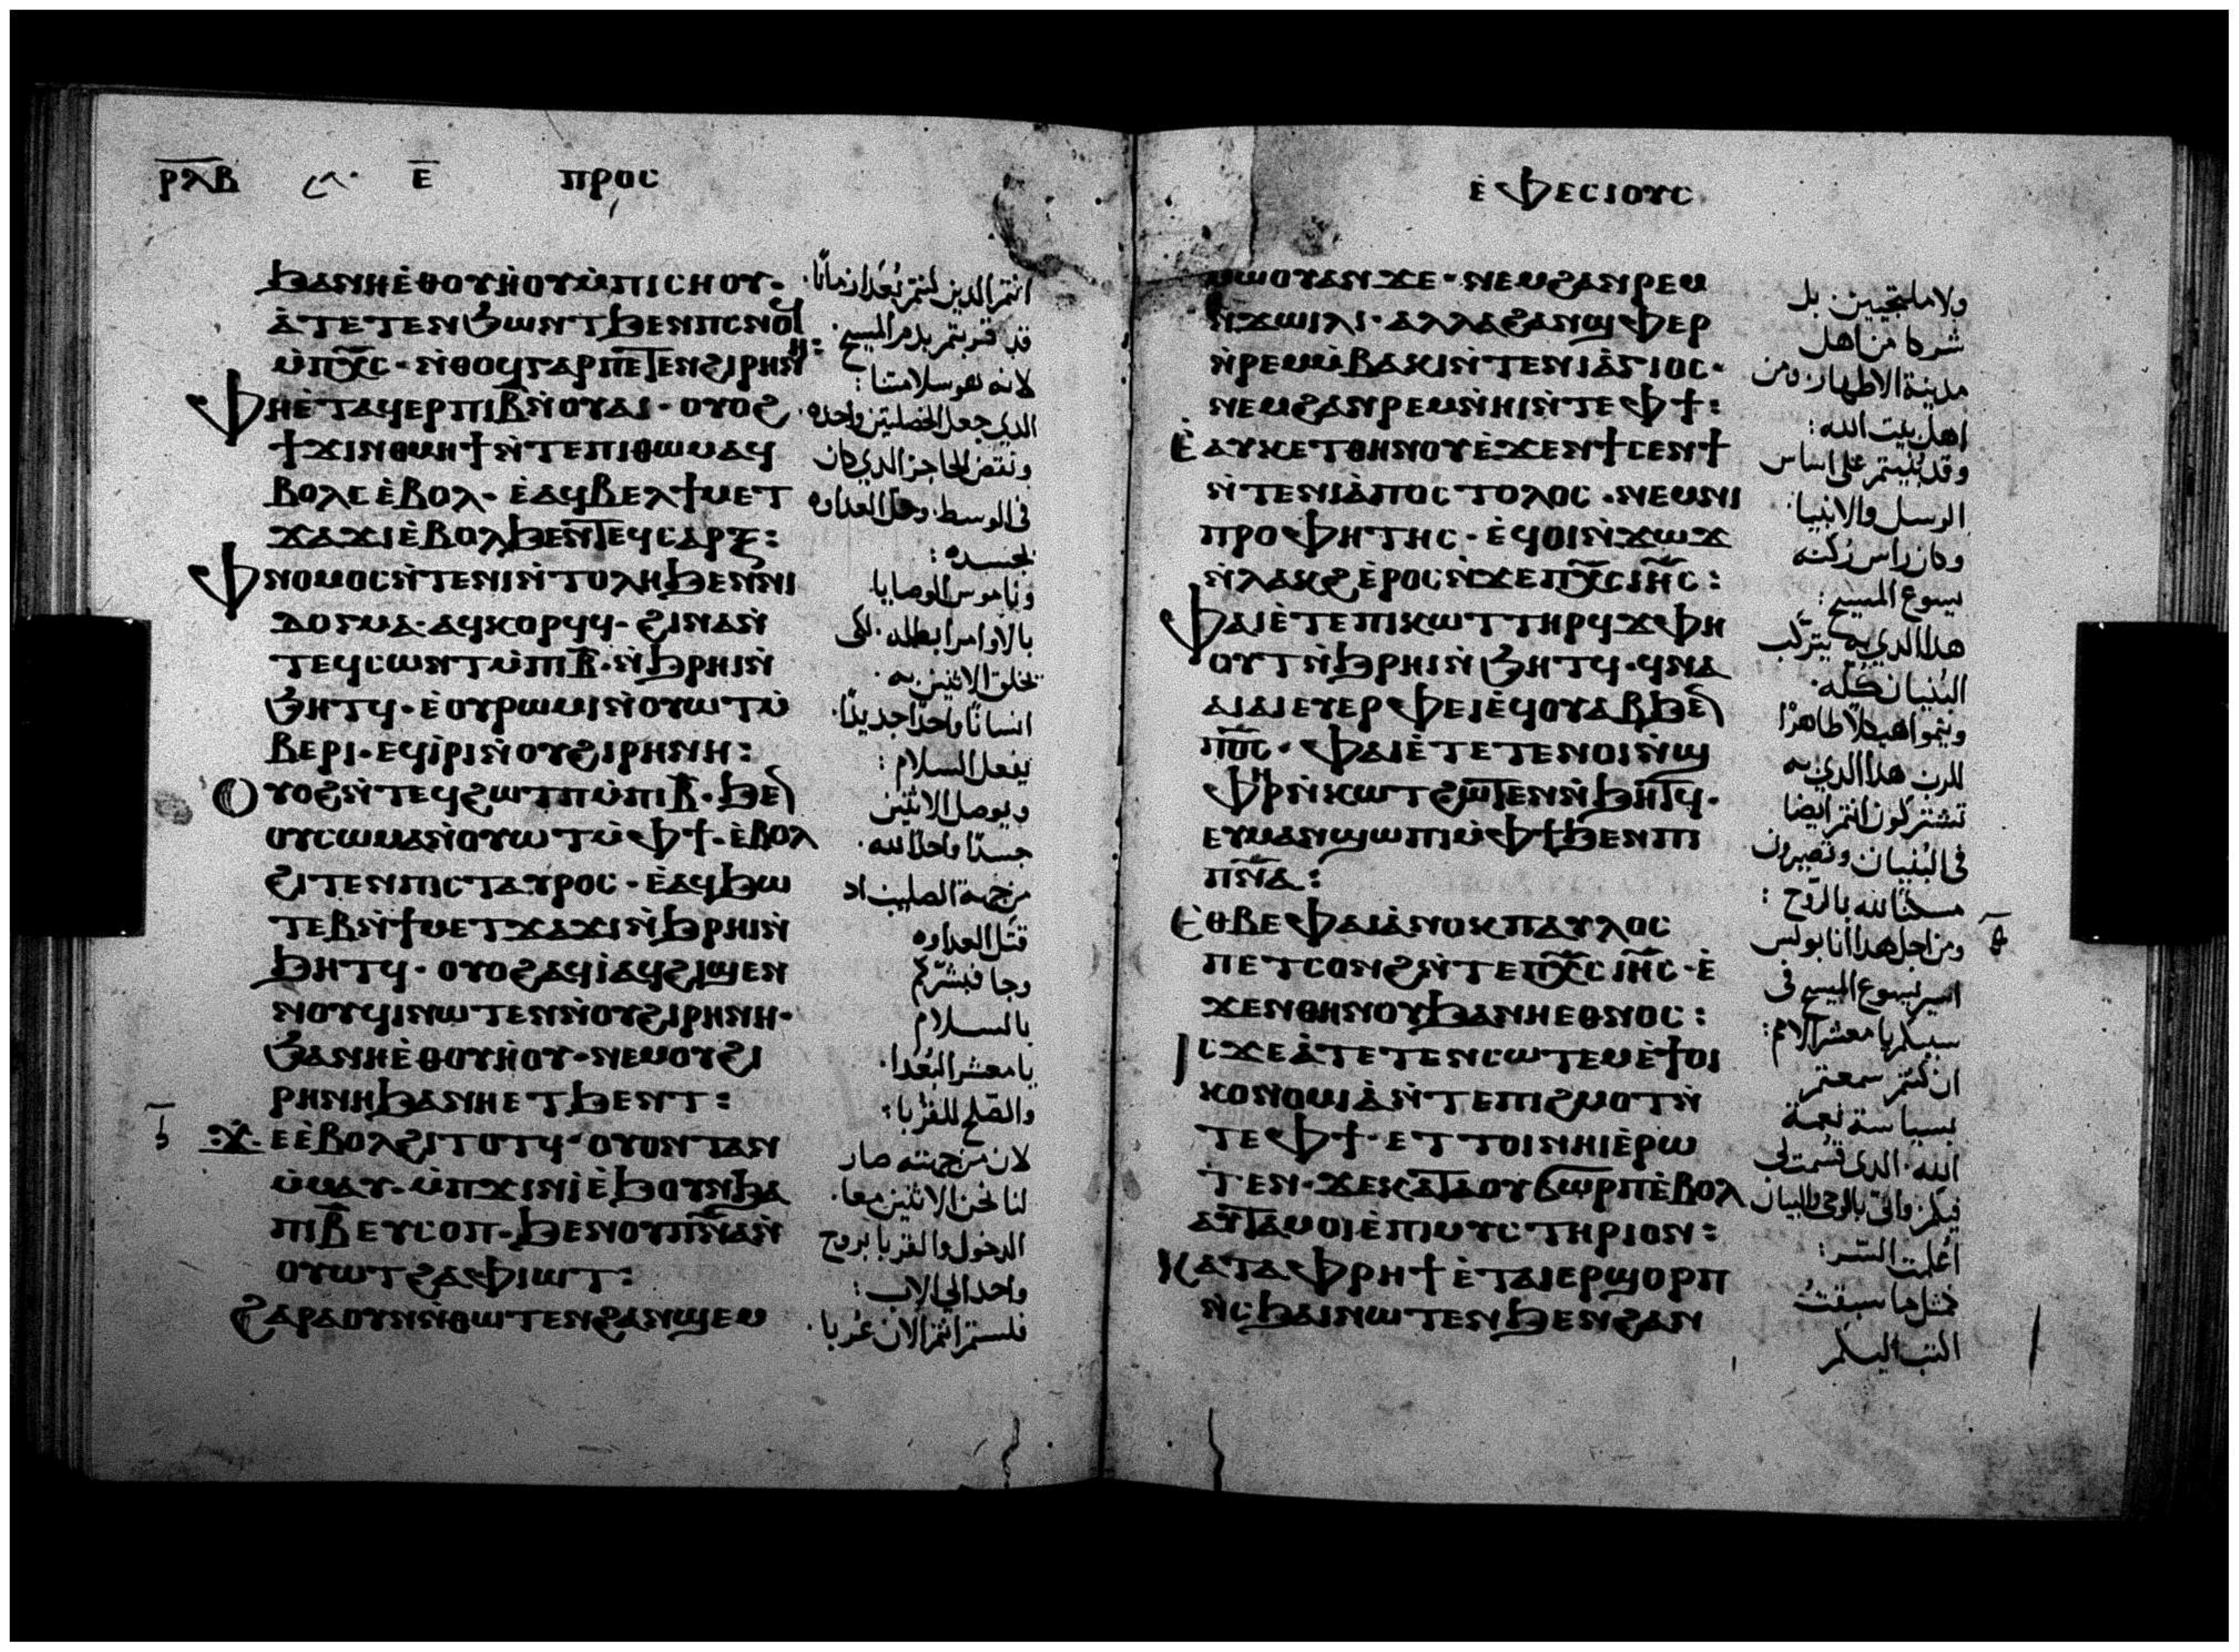 ⲣⲗⲃ ⲉ ⲡⲣⲟⲥ
ϧⲁⲛⲏⲉ̀ⲑⲟⲩⲏ̀ⲟⲩⲙ̀ⲡⲓⲥⲏⲟⲩ·
ⲁ̀ⲧⲉⲧⲉⲛϧⲱⲛⲧϧⲉⲛⲡⲥⲛⲟϥ
ⲙ̀ⲡⲭ̅ⲥ·ⲛ̀ⲑⲟϥⲅⲁⲣⲡⲉⲧⲉⲛϩⲓⲣⲏⲛⲏ:
ⲫⲏⲉ̀ⲧⲁϥⲉⲣⲡⲓⲃ̅ⲛ̀ⲟⲩⲁⲓ·ⲟⲩⲟϩ
ϯϫⲓⲛⲑⲙⲏϯⲛ̀ⲧⲉⲡⲓⲑⲱⲙⲁϥ
ⲃⲟⲗⲥⲉ̀ⲃⲟⲗ·ⲉ̀ⲁϥⲃⲉⲗϯⲙⲉⲧ
ϫⲁϫⲓⲉ̀ⲃⲟⲗϧⲉⲛⲧⲉϥⲥⲁⲣⲝ:
ⲫⲛⲟⲙⲟⲥⲛ̀ⲧⲉⲛⲓⲛ̀ⲧⲟⲗⲏϧⲉⲛⲛⲓ
ⲇⲟⲅⲙⲁ·ⲁϥⲕⲟⲣϥϥ·ϩⲓⲛⲁⲛ̀
ⲧⲉϥⲥⲱⲛⲧⲙ̀ⲡⲓⲃ̅·ⲛ̀ϧⲣⲏⲓⲛ̀
ϧⲏⲧϥ·ⲉⲟⲩⲣⲱⲙⲓⲛ̀ⲟⲩⲱⲧⲙ̀
ⲃⲉⲣⲓ·ⲉϥⲓ̀ⲣⲓⲛ̀ⲟⲩϩⲓⲣⲏⲛⲏ:
ⲟⲩⲟϩⲛ̀ⲧⲉϥϩⲱⲧⲡⲙ̀ⲡⲓⲃ̅·ϧⲉⲛ
ⲟⲩⲥⲱⲙⲁⲛ̀ⲟⲩⲱⲧⲙ̀ⲫϯ·ⲉ̀ⲃⲟⲗ
ϩⲓⲧⲉⲛⲡⲓⲥⲧⲁⲩⲣⲟⲥ·ⲉ̀ⲁϥϧⲱ
ⲧⲉⲃⲛ̀ϯⲙⲉⲧϫⲁϫⲓⲛ̀ϧⲣⲏⲓⲛ̀
ϧⲏⲧϥ·ⲟⲩⲟϩⲁϥⲓ̀ⲁϥϩⲓϣⲉⲛ
ⲛⲟⲩϥⲓⲛⲱⲧⲉⲛⲛ̀ⲟⲩϩⲓⲣⲏⲛⲏ·
ϧⲁⲛⲏⲉ̀ⲑⲟⲩⲏ̀ⲟⲩ·ⲛⲉⲙⲟⲩϩⲓ
ⲣⲏⲛⲏϧⲁⲛⲏⲉⲧϧⲉⲛⲧ:
ϫⲉⲉ̀ⲃⲟⲗϩⲓⲧⲟⲧϥ·ⲟⲩⲟⲛⲧⲁⲛ
ⲙ̀ⲙⲁⲩ·ⲙ̀ⲡϫⲓⲛⲓ̀ⲉ̀ϧⲟⲩⲛϧⲁ
ⲡⲓⲃ̅ⲉⲩⲥⲟⲡ·ϧⲉⲛⲟⲩⲡⲛ̅ⲁⲛ̀
ⲟⲩⲱⲧϩⲁⲫⲓⲱⲧ:
ϩⲁⲣⲁⲟⲩⲛⲛ̀ⲑⲱⲧⲉⲛϩⲁⲛϣⲉⲙ
انتم الدين كنتم بُعَدا زمانًا·
قد قربتم بدم المسيح·
لانه هو سلامتنا:
الدي جعل الخصلتين واحده·
ونقض الحاجز الدي كان
في الوسط· وحل العداوه
بجسده:
وناموس الوصايا·
بالاوامر ابطله· لكي
يخلق الاثنين به·
انسانًا واحدًا جديدًا·
يفعل السلام:
ويوصل الاثنين
جسدًا واحدًا لله·
من جهة الصليب اد
قتل العداوه
وجا فبشركم
بالسلام
يا معشر البُعدا·
والصلح للقُربا:
لان من جهته صار
لنا نحن الاثنين معا·
الدخول والقربا بروح
واحد الي الاب:
فلستم انتم الان غُربا·
ⲉ̀ⲫⲉⲥⲓⲟⲩⲥ
ⲙⲱⲟⲩⲁⲛϫⲉ·ⲛⲉⲙϩⲁⲛⲣⲉⲙ
ⲛ̀ϫⲱⲓⲗⲓ·ⲁⲗⲗⲁϩⲁⲛϣⲫⲉⲣ
ⲛ̀ⲣⲉⲙⲙ̀ⲃⲁⲕⲓⲛ̀ⲧⲉⲛⲓⲁ̀ⲅⲓⲟⲥ·
ⲛⲉⲙϩⲁⲛⲣⲉⲙⲛ̀ⲏⲓⲛ̀ⲧⲉⲫϯ:
ⲉ̀ⲁⲩⲕⲉⲧⲑⲏⲛⲟⲩⲉ̀ϫⲉⲛϯⲥⲉⲛϯ
ⲛ̀ⲧⲉⲛⲓⲁ̀ⲡⲟⲥⲧⲟⲗⲟⲥ·ⲛⲉⲙⲛⲓ
ⲡⲣⲟⲫⲏⲧⲏⲥ·ⲉϥⲟⲓⲛ̀ϫⲱϫ
ⲛ̀ⲗⲁⲕϩⲉ̀ⲣⲟⲥⲛ̀ϫⲉⲡⲭ̅ⲥⲓⲏ̅ⲥ:
ⲫⲁⲓⲉ̀ⲧⲉⲡⲓⲕⲱⲧⲧⲏⲣϥⲭⲫⲏ
ⲟⲩⲧⲛ̀ϧⲣⲏⲓⲛ̀ϧⲏⲧϥ·ϥⲛⲁ
ⲁⲓⲁⲓⲉⲩⲉⲣⲫⲉⲓⲉϥⲟⲩⲁⲃϧⲉⲛ
ⲡⲟ̅ⲥ·ⲫⲁⲓⲉ̀ⲧⲉⲧⲉⲛⲟⲓⲛ̀ϣ
ⲫⲏⲣⲛ̀ⲕⲱⲧϩⲱⲧⲉⲛⲛ̀ϧⲏⲧϥ·
ⲉⲩⲙⲁⲛϣⲱⲡⲓⲙ̀ⲫϯϧⲉⲛⲡⲓ
ⲡⲛ̅ⲁ:
ⲉ̀ⲑⲃⲉⲫⲁⲓⲁ̀ⲛⲟⲕⲡⲁⲩⲗⲟⲥ
ⲡⲉⲧⲥⲟⲛϩⲛ̀ⲧⲉⲡⲭ̅ⲥⲓⲏ̅ⲥ·ⲉ̀
ϫⲉⲛⲑⲏⲛⲟⲩϧⲁⲛⲏⲉⲑⲛⲟⲥ:
ⲓⲥϫⲉⲁ̀ⲧⲉⲧⲉⲛⲥⲱⲧⲉⲙⲉ̀ϯⲟⲓ
ⲕⲟⲛⲟⲙⲓⲁ̀ⲛ̀ⲧⲉⲡⲓϩⲙⲟⲧⲛ̀
ⲧⲉⲫϯ·ⲉⲧⲧⲟⲓⲛⲏⲓⲉ̀ⲣⲱ
ⲧⲉⲛ·ϫⲉⲕⲁⲧⲁⲟⲩϭⲱⲣⲡⲉ̀ⲃⲟⲗ
ⲁⲩⲧⲁⲙⲟⲓⲉ̀ⲡⲓⲙⲩⲥⲧⲏⲣⲓⲟⲛ:
ⲕⲁⲧⲁⲫⲣⲏϯⲉ̀ⲧⲁⲓⲉⲣϣⲟⲣⲡ
ⲛ̀ⲥϧⲁⲓⲛⲱⲧⲉⲛϧⲉⲛϩⲁⲛ
ولا ملتجيين بل
شركا من اهل
مدينة الاطهار ومن
اهل بيت الله:
وقد بُنيتم على اساس
الرسل والانبيا·
وكان راس رُكنه
يسوع المسيح:
هدا الدي به يتركّب
البُنيان كله·
وينموا هيكلًا طاهرًا
للرب هدا الدي به
تشتركون انتم ايضا
في البُنيان وتصيرون
مسكنًا لله بالرّوح:
ومن اجل هدا أنا بولس
اسير يسوع المسيح في
سببكم يا معشر الامم:
ان كنتم سمعتم
بسياسة نعمة
الله· الدي قسمت لي
فيكم واني بالوحي والبيان
أعلمت السّر:
كمثل ما سبقتُ
اكتب اليكم